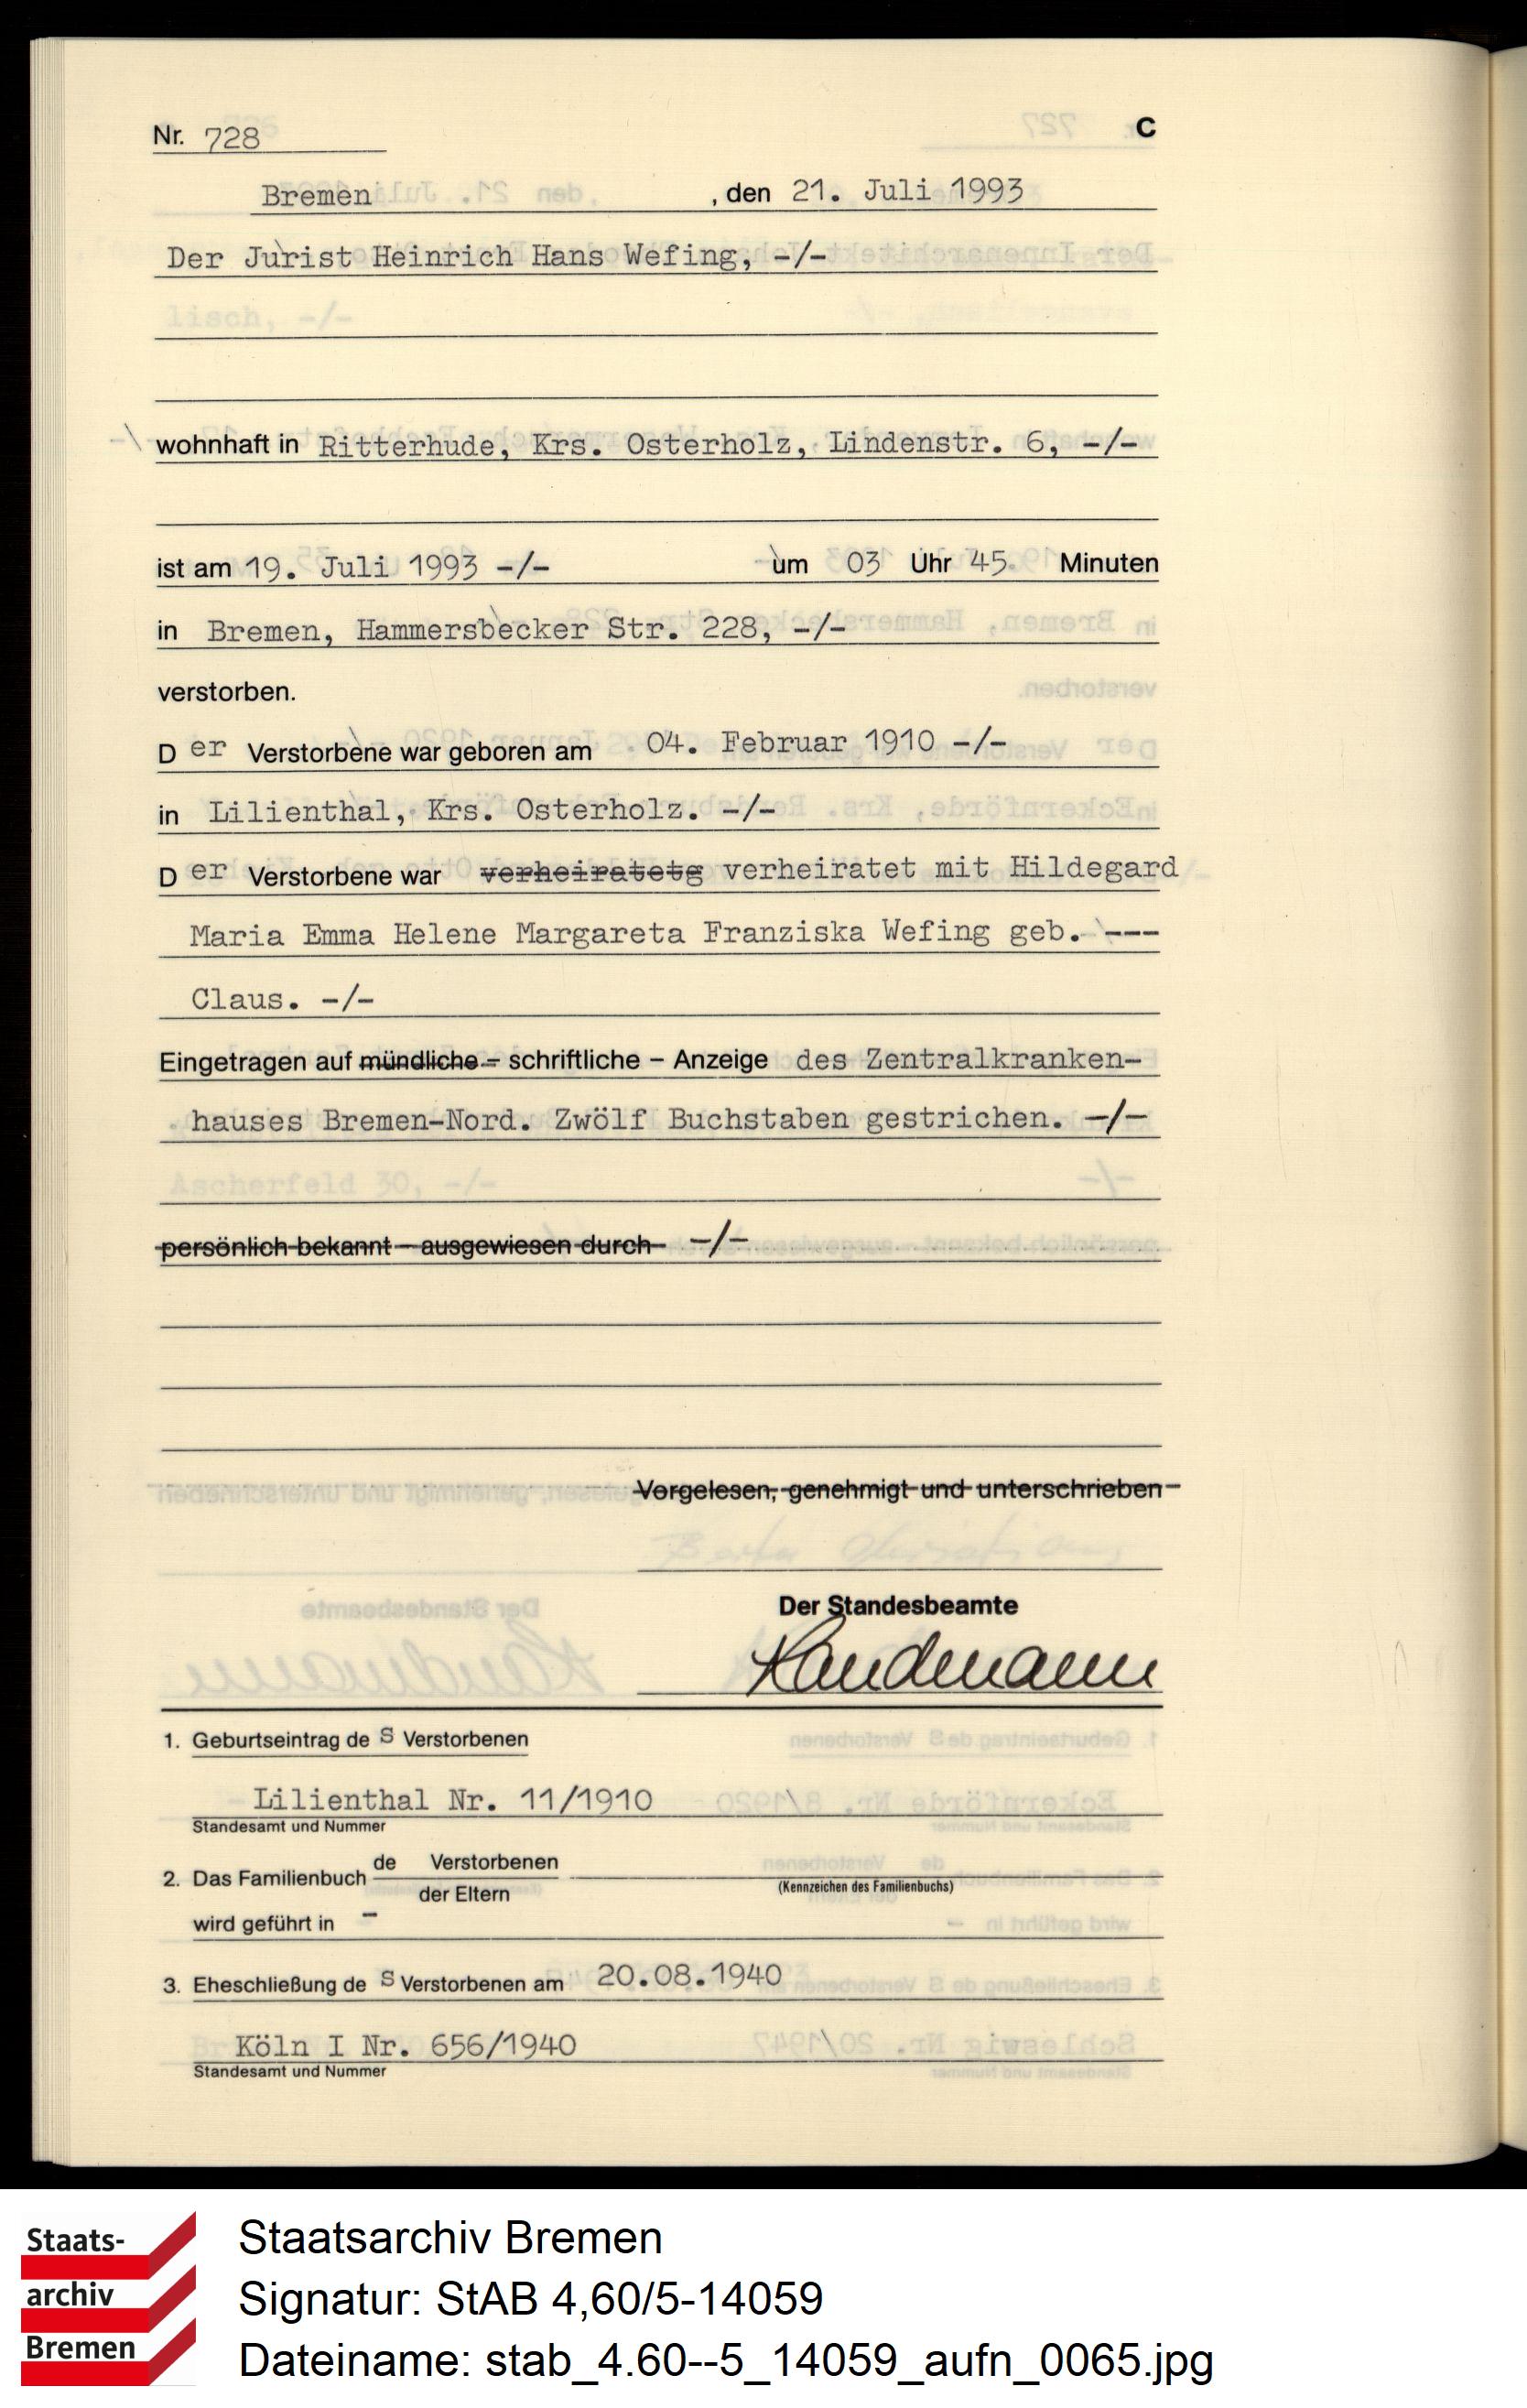 Nr. 728
C
Bremen, den 21. Juli 1993
Der Jurist Heinrich Hans Wefing, -/-
wohnhaft in Ritterhude, Krs. Osterholz, Lindenstr. 6, -/-
ist am 19. Juli 1993 -/- um 03 Uhr 45 Minuten
in Bremen, Hammersbecker Str. 228, -/-
verstorben.
Der Verstorbene war geboren am 04. Februar 1910 -/-
in Lilienthal, Krs. Osterholz. -/-
Der Verstorbene war verheiratetg verheiratet mit Hildegard
Maria Emma Helene Margareta Franziska Wefing geb. ---
Claus. -/-
Eingetragen auf mündliche – schriftliche – Anzeige des Zentralkranken-
hauses Bremen-Nord. Zwölf Buchstaben gestrichen. -/-
persönlich bekannt – ausgewiesen durch -/-
Vorgelesen, genehmigt und unterschrieben
Der Standesbeamte
Landmann
1. Geburtseintrag des Verstorbenen
Lilienthal Nr. 11/1910
Standesamt und Nummer
2. Das Familienbuch de Verstorbenen
der Eltern
(Kennzeichen des Familienbuchs)
wird geführt in -
3. Eheschließung des Verstorbenen am 20.08.1940
Köln I Nr. 656/1940
Standesamt und Nummer
Staats-
archiv
Bremen
Staatsarchiv Bremen
Signatur: StAB 4,60/5-14059
Dateiname: stab_4.60--5_14059_aufn_0065.jpg